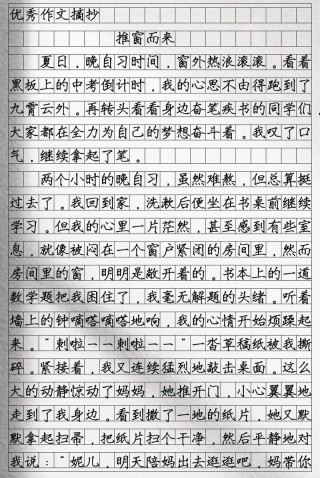 优秀作文摘抄
推窗而来
夏日，晚自习时间，窗外热浪滚滚。看着
黑板上的中考倒计时，我的心思不由得跑到了
九霄云外。再转头看看身边奋笔疾书的同学们，
大家都在全力为自己的梦想奋斗着。我叹了口
气，继续拿起了笔。
两个小时的晚自习，虽然难熬，但总算挺
过去了。我回到家，洗漱后便坐在书桌前继续
学习。但我的心里一片茫然，甚至感到有些窒
息，就像被闷在一个窗户紧闭的房间里，然而
房间里的窗，明明是敞开着的。书本上的一道
数学题把我困住了，我毫无解题的头绪。听着
墙上的钟嘀嗒嘀嗒地响，我的心情开始烦躁起
来。“刺啦——刺啦——”一沓草稿纸被我撕
碎。紧接着，我又连续猛烈地敲击桌面。这么
大的动静惊动了妈妈，她推开门，小心翼翼地
走到了我身边。看到撒了一地的纸片，她又默
默拿起扫帚，把纸片扫个干净，然后平静地对
我说：“妮儿，明天陪妈出去逛逛吧，妈带你